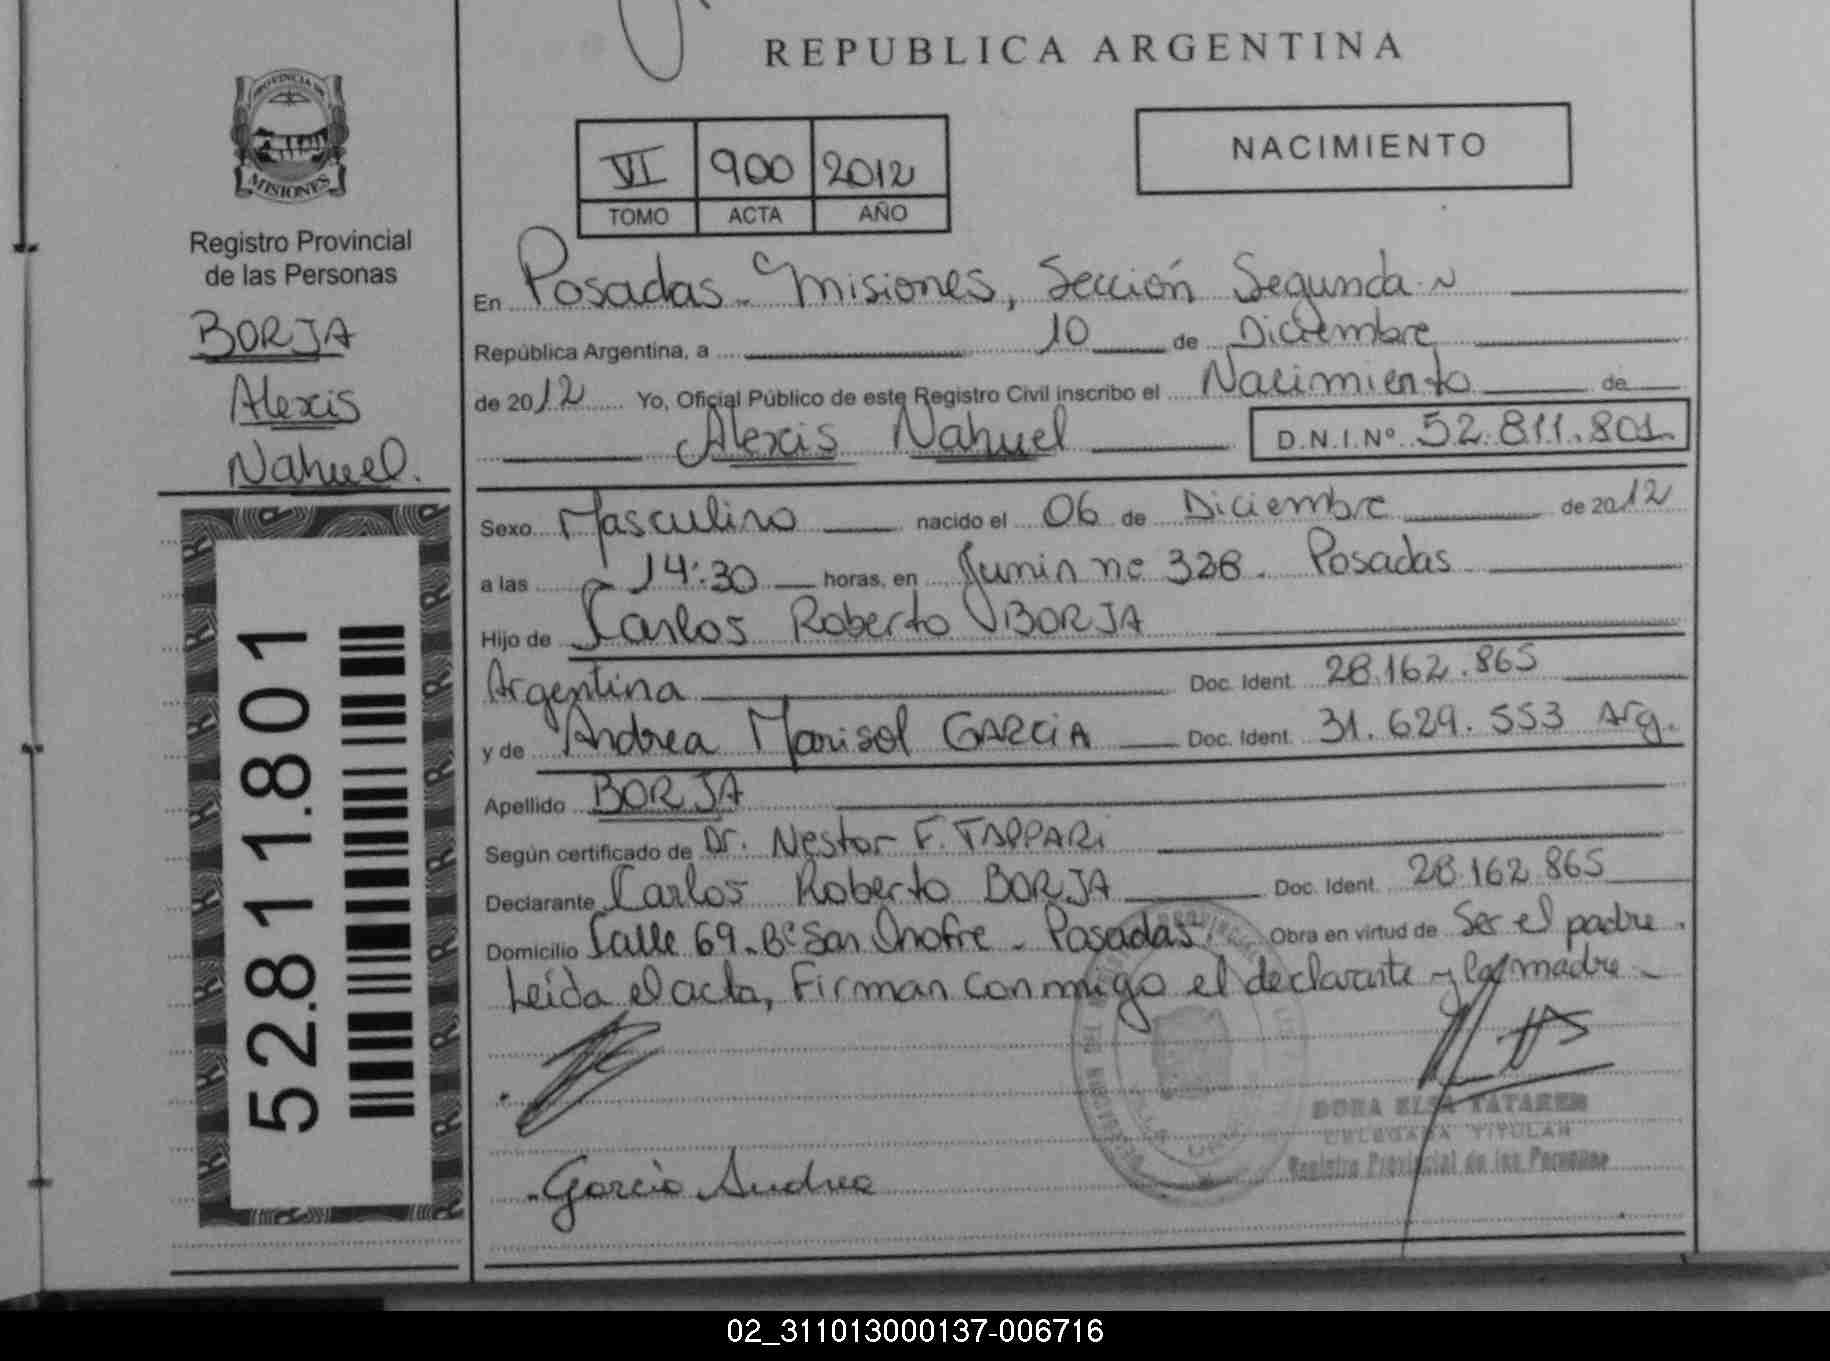 REPUBLICA ARGENTINA
PROVINCIA DE
MISIONES
Registro Provincial
de las Personas
BORJA
Alexis
Nahuel.
52.811.801
VI 900 2012
TOMO ACTA AÑO
NACIMIENTO
En Posadas - Misiones, Sección Segunda
República Argentina, a 10 de Diciembre
de 2012 Yo, Oficial Público de este Registro Civil inscribo el Nacimiento de
Alexis Nahuel D.N.I.Nº 52.811.801
Sexo Masculino nacido el 06 de Diciembre de 2012
a las 14:30 horas, en Junin nº 328. Posadas
Hijo de Carlos Roberto BORJA
Argentina Doc. Ident. 28.162.865
y de Andrea Marisol GARCIA Doc. Ident. 31.629.553 Arg.
Apellido BORJA
Según certificado de Dr. Nestor F. TAPPARi
Declarante Carlos Roberto BORJA Doc. Ident. 28.162.865
Domicilio Calle 69 - Bº San Onofre - Posadas. Obra en virtud de Ser el padre.
Leída el acta, Firman conmigo el declarante y la madre
DORA ELSA TATAREN
DELEGADA TITULAR
Registro Provincial de las Personas
Garcia Andrea
02_311013000137-006716